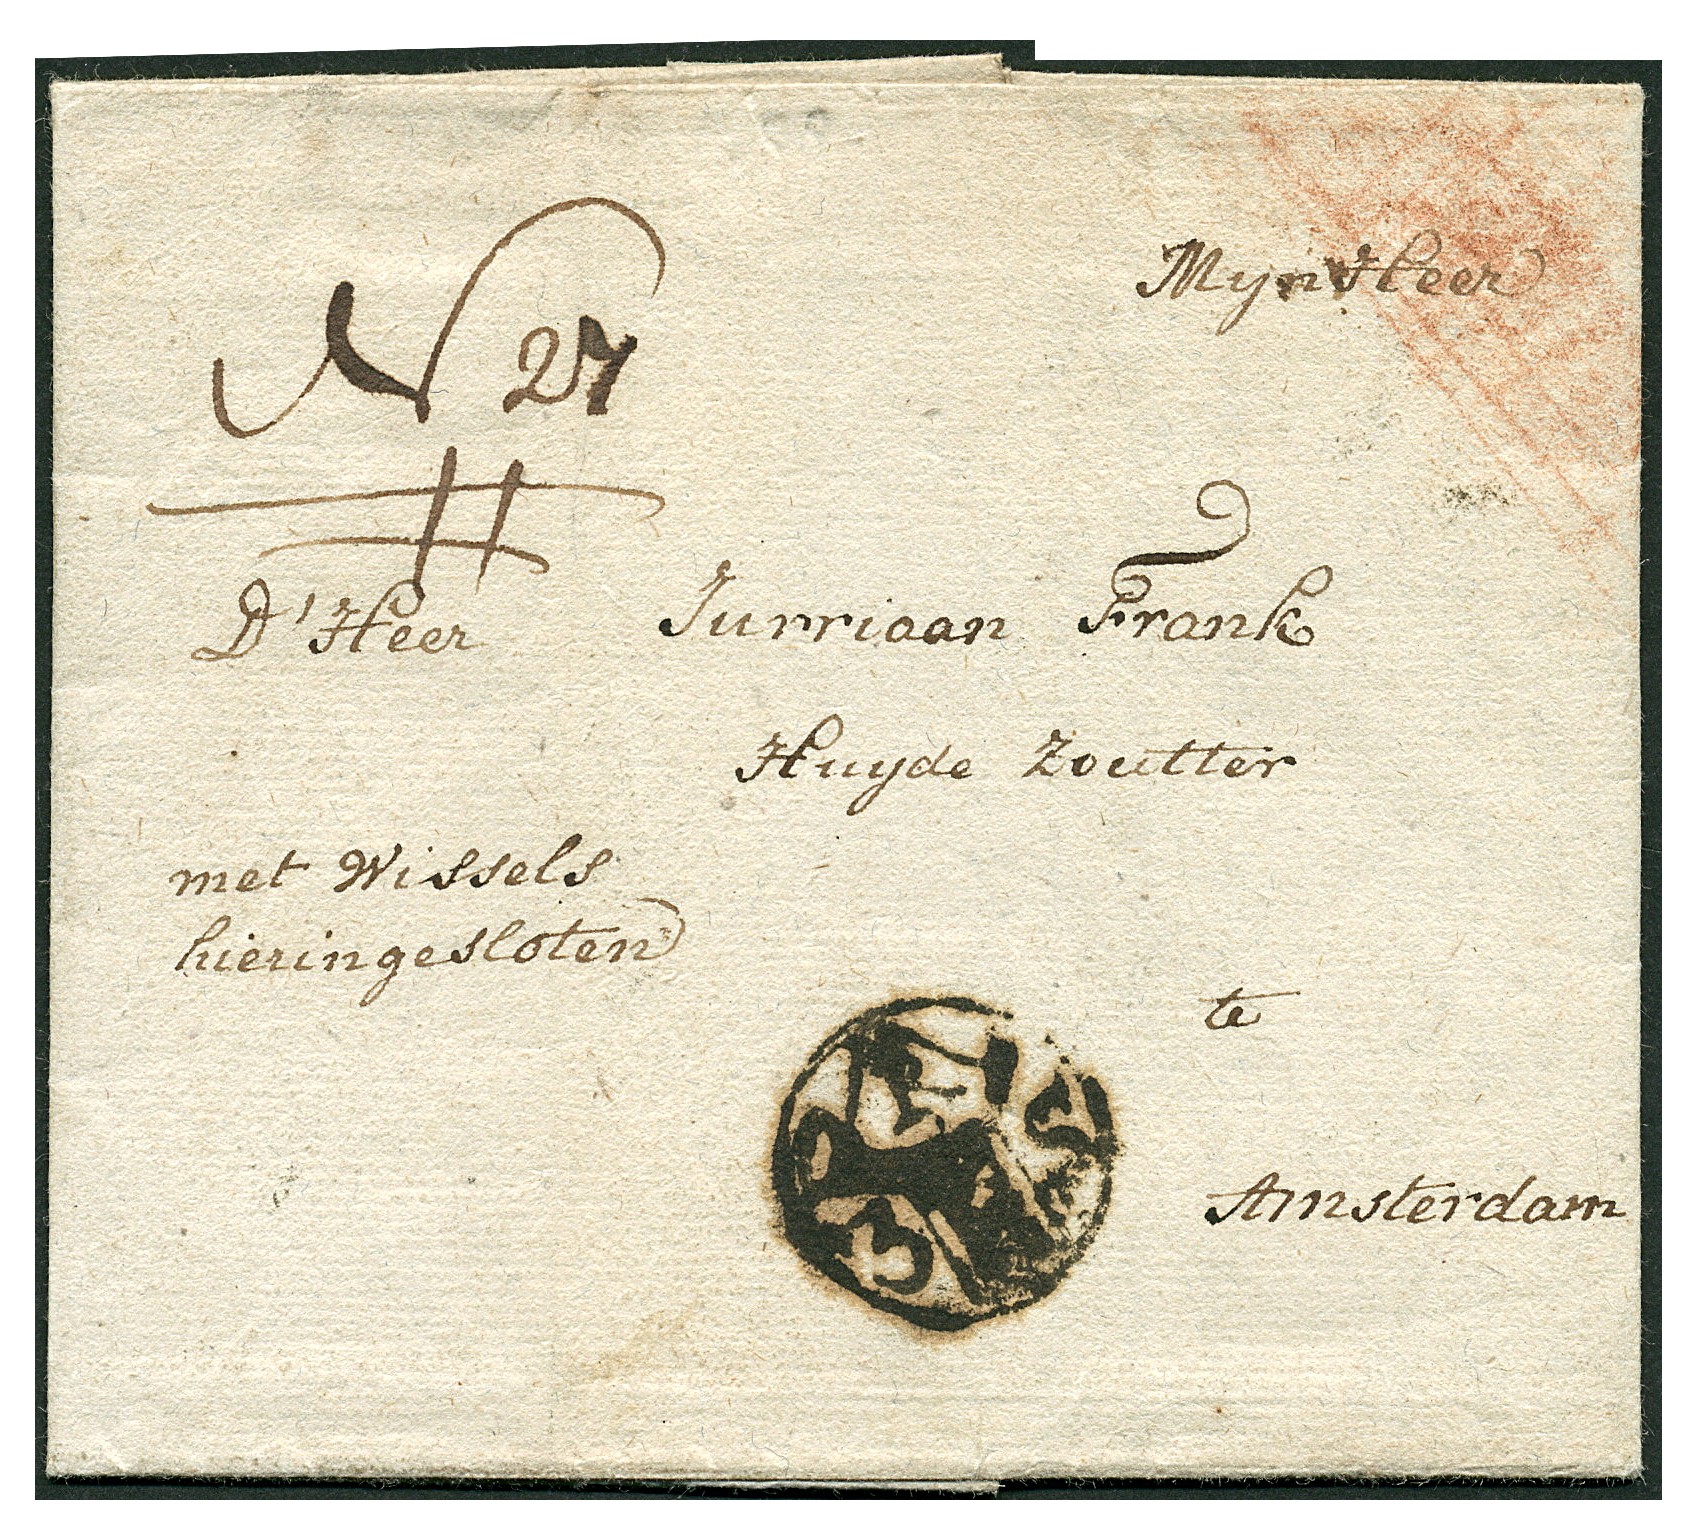 Mynheer
N 27
D' Heer Jurriaan Frank
Huyde Zoutter
met Wissels
hieringesloten
te
Amsterdam
3